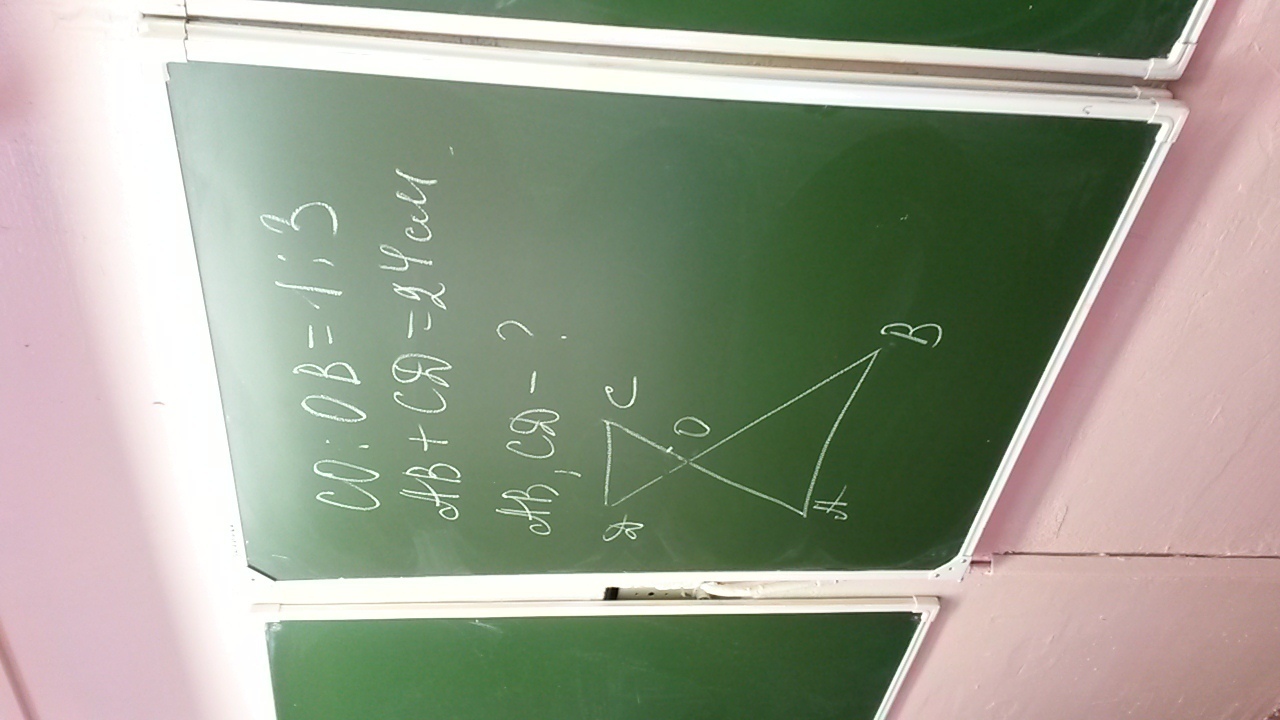 CO : OB = 1 : 3
AB + CД = 24 см
AB, CД - ?
Д
C
O
A
B